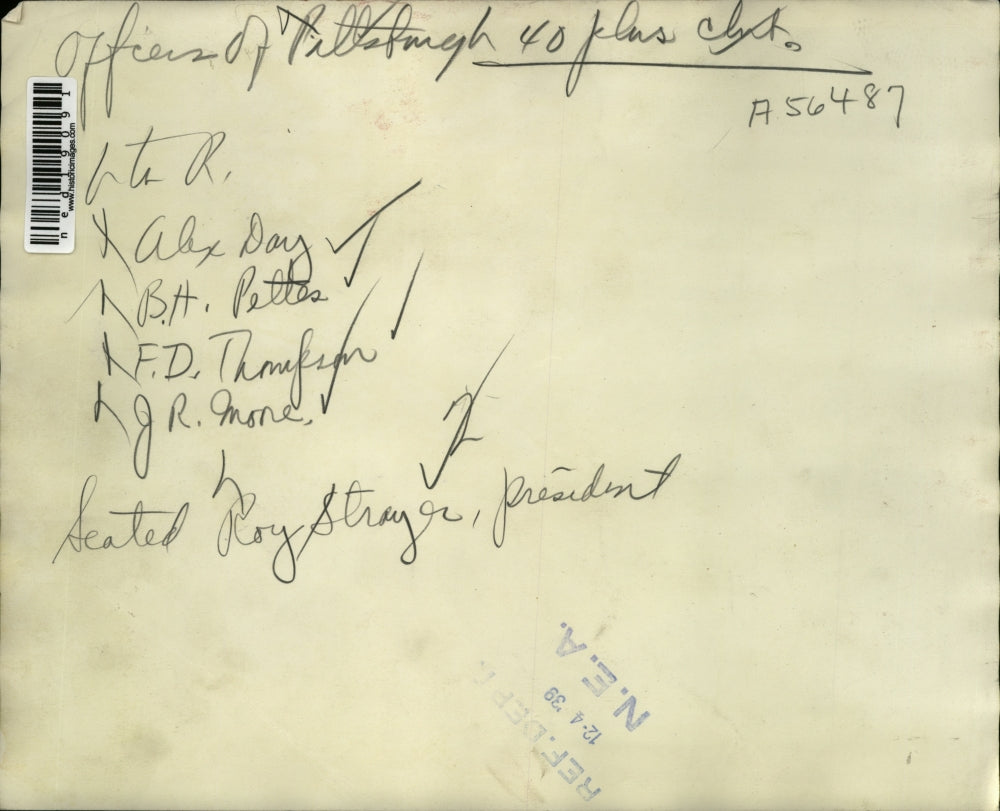 Officers of Pittsburgh 40 plus club.
A56487
L to R.
Alex Day
B.H. Pettes
F.D. Thompson
J R. Moore.
Seated Roy Strayer, president
ned19091
www.historicimages.com
REF. DEPT.
12-4-'39
N.E.A.